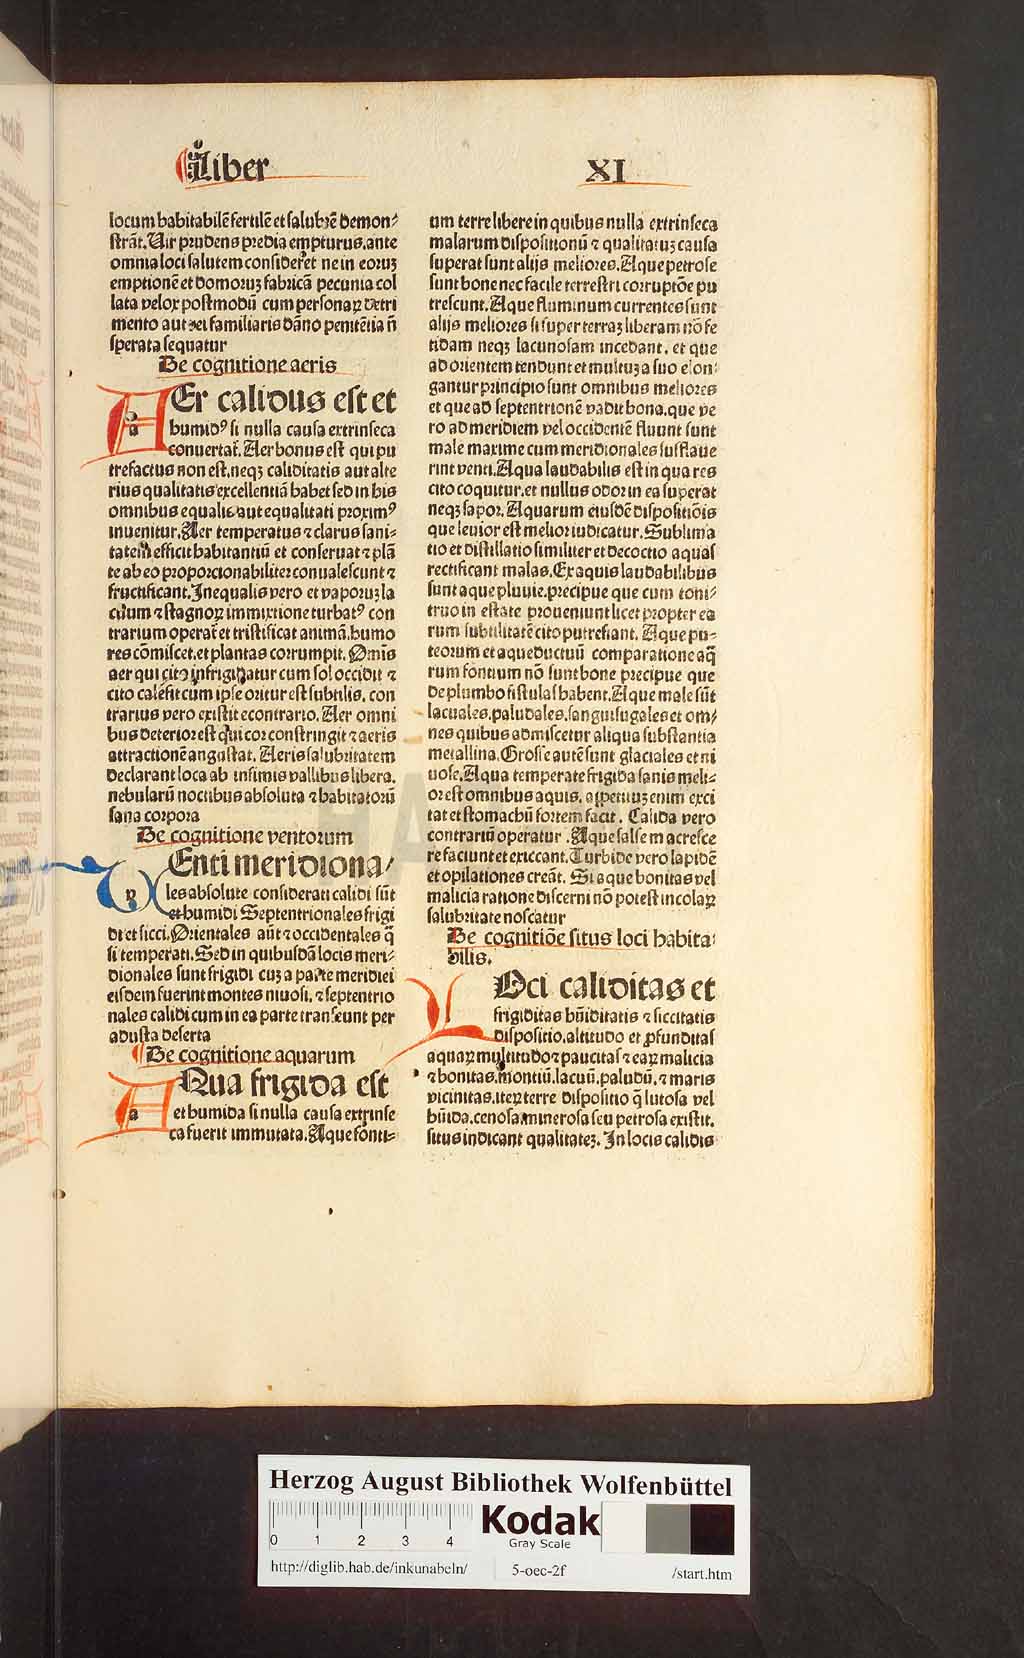 Liber XI
locum habitabilē fertilē et salubrē demon⸗
strāt. Uir prudens predia empturus. ante
omnia loci salutem consideret ne in eoruꝫ
emptionē et domoruꝫ fabricā pecunia col
lata velox postmodū cum personaꝝ detri
mento aut rei familiaris dāno penitētia ñ
sperata sequatur
De cognitione aeris
AEr calidus est et
humidꝰ si nulla causa extrinseca
conuertat᷑. Aer bonus est qui pu
trefactus non est. neqꝫ caliditatis aut alte
rius qualitatis excellentiā habet sed in his
omnibus equalis aut equalitati proximꝰ
inuenitur. Aer temperatus ⁊ clarus sani⸗
tatem efficit habitantiū et conseruat ⁊ plā
te ab eo proporcionabiliter conualescunt ⁊
fructificant. Inequalis vero et vaporuꝫ la
cuum ⁊ stagnoꝝ immixtione turbatꝰ con
trarium operat᷑ et tristificat animā. humo
res cōmiscet. et plantas corrumpit. Omīs
aer qui cito infrigidatur cum sol occidit ⁊
cito calēfit cum ipse oritur est subtilis. con
trarius vero existit econtrario. Aer omni
bus deterior est qui cor constringit ⁊ aeris
attractionē angustat. Aeris salubritatem
declarant loca ab infimis vallibus libera.
nebularū noctibus absoluta ⁊ habitatorū
sana corpora
De cognitione ventorum
VEnti meridiona⸗
les absolute considerati calidi sūt
et humidi Septentrionales frigi
di et sicci. Orientales aūt ⁊ occidentales q̄
si temperati. Sed in quibusdā locis meri⸗
dionales sunt frigidi cuꝫ a parte meridiei
eisdem fuerint montes niuosi. ⁊ septentrio
nales calidi cum in ea parte transeunt per
adusta deserta
De cognitione aquarum
AQua frigida est
et humida si nulla causa extrinse
ca fuerit immutata. Aque fonti⸗
um terre libere in quibus nulla extrinseca
malarum dispositionū ⁊ qualitatuꝫ causa
superat sunt alijs meliores. Aque petrose
sunt bone nec facile terrestri corruptōe pu
trescunt. Aque fluminum currentes sunt
alijs meliores si super terraꝫ liberam nō fe
tidam neqꝫ lacunosam incedant. et que
ad orientem tendunt et multuꝫ a suo elon⸗
gantur principio sunt omnibus meliores
et que ad septentrionē vadit bona. que ve
ro ad meridiem vel occidentē fluunt sunt
male maxime cum meridionales sufflaue
rint venti. Aqua laudabilis est in qua res
cito coquitur. et nullus odor in ea superat
neqꝫ sapor. Aquarum eiusdē dispositiōis
que leuior est melior iudicatur. Sublima
tio et distillatio similiter et decoctio aquas
rectificant malas. Ex aquis laudabilibus
sunt aque pluuie. precipue que cum toni⸗
truo in estate proueniunt licet propter ea
rum subtilitatē cito putrefiant. Aque pu⸗
teorum et aqueductuū comparatione aq̄
rum fontium nō sunt bone precipue que
de plumbo fistulas habent. Aque male sūt
lacuales. paludales. sanguisugales et om⸗
nes quibus admiscetur aliqua substantia
metallina. Grosse autē sunt glaciales et ni
uose. Aqua temperate frigida sanis meli⸗
or est omnibus aquis. appetituꝫ enim exci
tat et stomachū fortem facit. Calida vero
contrariū operatur. Aque salse macresce
re faciunt et exiccant. Turbide vero lapidē
et opilationes creāt. Si aque bonitas vel
malicia ratione discerni nō potest incolaꝝ
salubritate noscatur
De cognitiōe situs loci habita⸗
bilis.
LOci caliditas et
frigiditas hūiditatis ⁊ siccitatis
dispositio. altitudo et ꝓfunditas
aquaꝝ multitudo ⁊ paucitas ⁊ eaꝝ malicia
⁊ bonitas. montiū. lacuū. paludū. ⁊ maris
vicinitas. iteꝝ terre dispositio q̄ lutosa vel
hūida. cenosa. minerosa seu petrosa existit.
situs indicant qualitateꝫ. In locis calidis
Herzog August Bibliothek Wolfenbüttel
0 1 2 3 4
Kodak
Gray Scale
http://diglib.hab.de/inkunabeln/ 5-oec-2f /start.htm